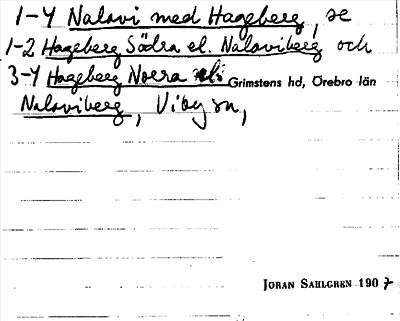 1-4 Nalavi med Hageberg, se
1-2 Hageberg Södra el. Nalaviberg och
3-4 Hageberg Norra Grimstens hd, Örebro län
Nalaviberg, Viby sn,
JÖRAN SAHLGREN 1907